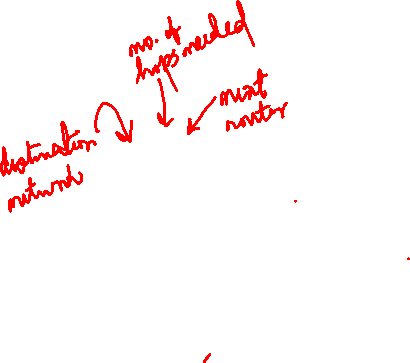 no. of
hops needed
next
router
destination
network